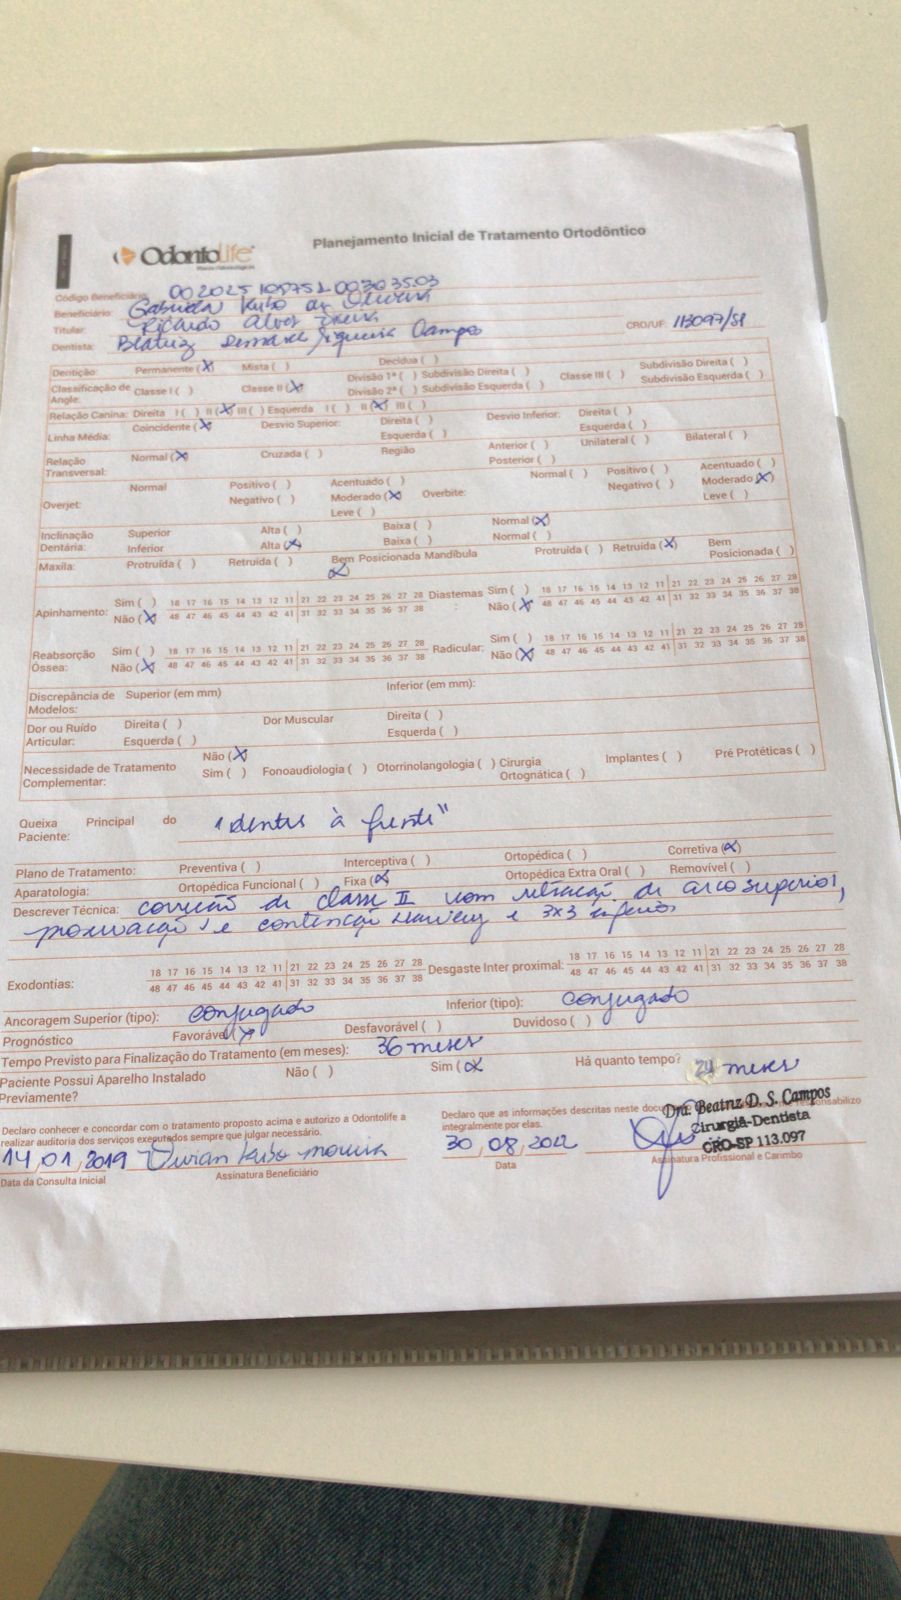 OdontoLife
Planejamento Inicial de Tratamento Ortodôntico
Código Beneficiário:
Beneficiário: Gabriela Kubo de Oliveira
Titular: Ricardo Alves
Dentista: Beatriz Siqueira Campos CRO/UF: 113097/SP
Dentição: Permanente (X) Mista ( ) Decídua ( )
Classificação de Angle: Classe I ( ) Classe II (X) Divisão 1ª ( ) Subdivisão Direita ( ) Classe III ( ) Subdivisão Direita ( )
Divisão 2ª ( ) Subdivisão Esquerda ( ) Subdivisão Esquerda ( )
Relação Canina: Direita I ( ) II (X) III ( ) Esquerda I ( ) II (X) III ( )
Linha Média: Coincidente (X) Desvio Superior: Direita ( ) Desvio Inferior: Direita ( )
Esquerda ( ) Esquerda ( )
Relação Transversal: Normal (X) Cruzada ( ) Região Anterior ( ) Unilateral ( ) Bilateral ( )
Posterior ( )
Overjet: Normal Positivo ( ) Acentuado ( ) Overbite: Normal ( ) Positivo ( ) Acentuado ( )
Negativo ( ) Moderado (X) Negativo ( ) Moderado (X)
Leve ( ) Leve ( )
Inclinação Dentária: Superior Alta ( ) Baixa ( ) Normal (X)
Inferior Alta (X) Baixa ( ) Normal ( )
Maxila: Protruída ( ) Retruída ( ) Bem Posicionada (X) Mandíbula Protruída ( ) Retruída (X) Bem Posicionada ( )
Apinhamento: Sim ( ) 18 17 16 15 14 13 12 11 21 22 23 24 25 26 27 28 Diastemas: Sim ( ) 18 17 16 15 14 13 12 11 21 22 23 24 25 26 27 28
Não (X) 48 47 46 45 44 43 42 41 31 32 33 34 35 36 37 38 Não (X) 48 47 46 45 44 43 42 41 31 32 33 34 35 36 37 38
Reabsorção Óssea: Sim ( ) 18 17 16 15 14 13 12 11 21 22 23 24 25 26 27 28 Radicular: Sim ( ) 18 17 16 15 14 13 12 11 21 22 23 24 25 26 27 28
Não (X) 48 47 46 45 44 43 42 41 31 32 33 34 35 36 37 38 Não (X) 48 47 46 45 44 43 42 41 31 32 33 34 35 36 37 38
Discrepância de Modelos: Superior (em mm) Inferior (em mm):
Dor ou Ruído Articular: Direita ( ) Dor Muscular Direita ( )
Esquerda ( ) Esquerda ( )
Necessidade de Tratamento Complementar: Não (X)
Sim ( ) Fonoaudiologia ( ) Otorrinolangologia ( ) Cirurgia Ortognática ( ) Implantes ( ) Pré Protéticas ( )
Queixa Principal do Paciente: "dentes à frente"
Plano de Tratamento: Preventiva ( ) Interceptiva ( ) Ortopédica ( ) Corretiva (X)
Aparatologia: Ortopédica Funcional ( ) Fixa (X) Ortopédica Extra Oral ( ) Removível ( )
Descrever Técnica: correção de classe II com retração de arco superior,
e contenção Hawley e 3x3 inferior
Exodontias: 18 17 16 15 14 13 12 11 21 22 23 24 25 26 27 28 Desgaste Inter proximal: 18 17 16 15 14 13 12 11 21 22 23 24 25 26 27 28
48 47 46 45 44 43 42 41 31 32 33 34 35 36 37 38 48 47 46 45 44 43 42 41 31 32 33 34 35 36 37 38
Ancoragem Superior (tipo): conjugado Inferior (tipo): conjugado
Prognóstico Favorável (X) Desfavorável ( ) Duvidoso ( )
Tempo Previsto para Finalização do Tratamento (em meses): 36 meses
Paciente Possui Aparelho Instalado Previamente? Não ( ) Sim (X) Há quanto tempo? 24 meses
Declaro conhecer e concordar com o tratamento proposto acima e autorizo a Odontolife a
realizar auditoria dos serviços executados sempre que julgar necessário.
14/01/2019 Vivian Kubo Moreira
Data da Consulta Inicial Assinatura Beneficiário
Declaro que as informações descritas neste responsabilizo
integralmente por elas.
30/08/2022
Data Assinatura Profissional e Carimbo
Dra. Beatriz D. S. Campos
Cirurgiã-Dentista
CRO-SP 113.097